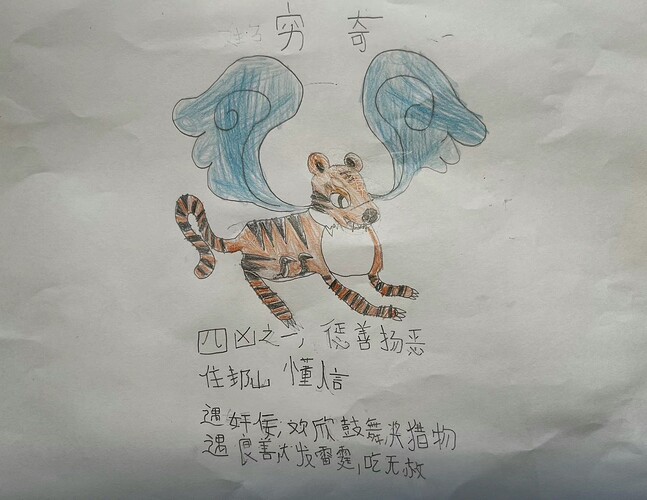 穷 奇
四凶之一，惩善扬恶
住邽山 懂人言
遇奸佞，欢欣鼓舞送猎物
遇良善，大发雷霆，吃无赦